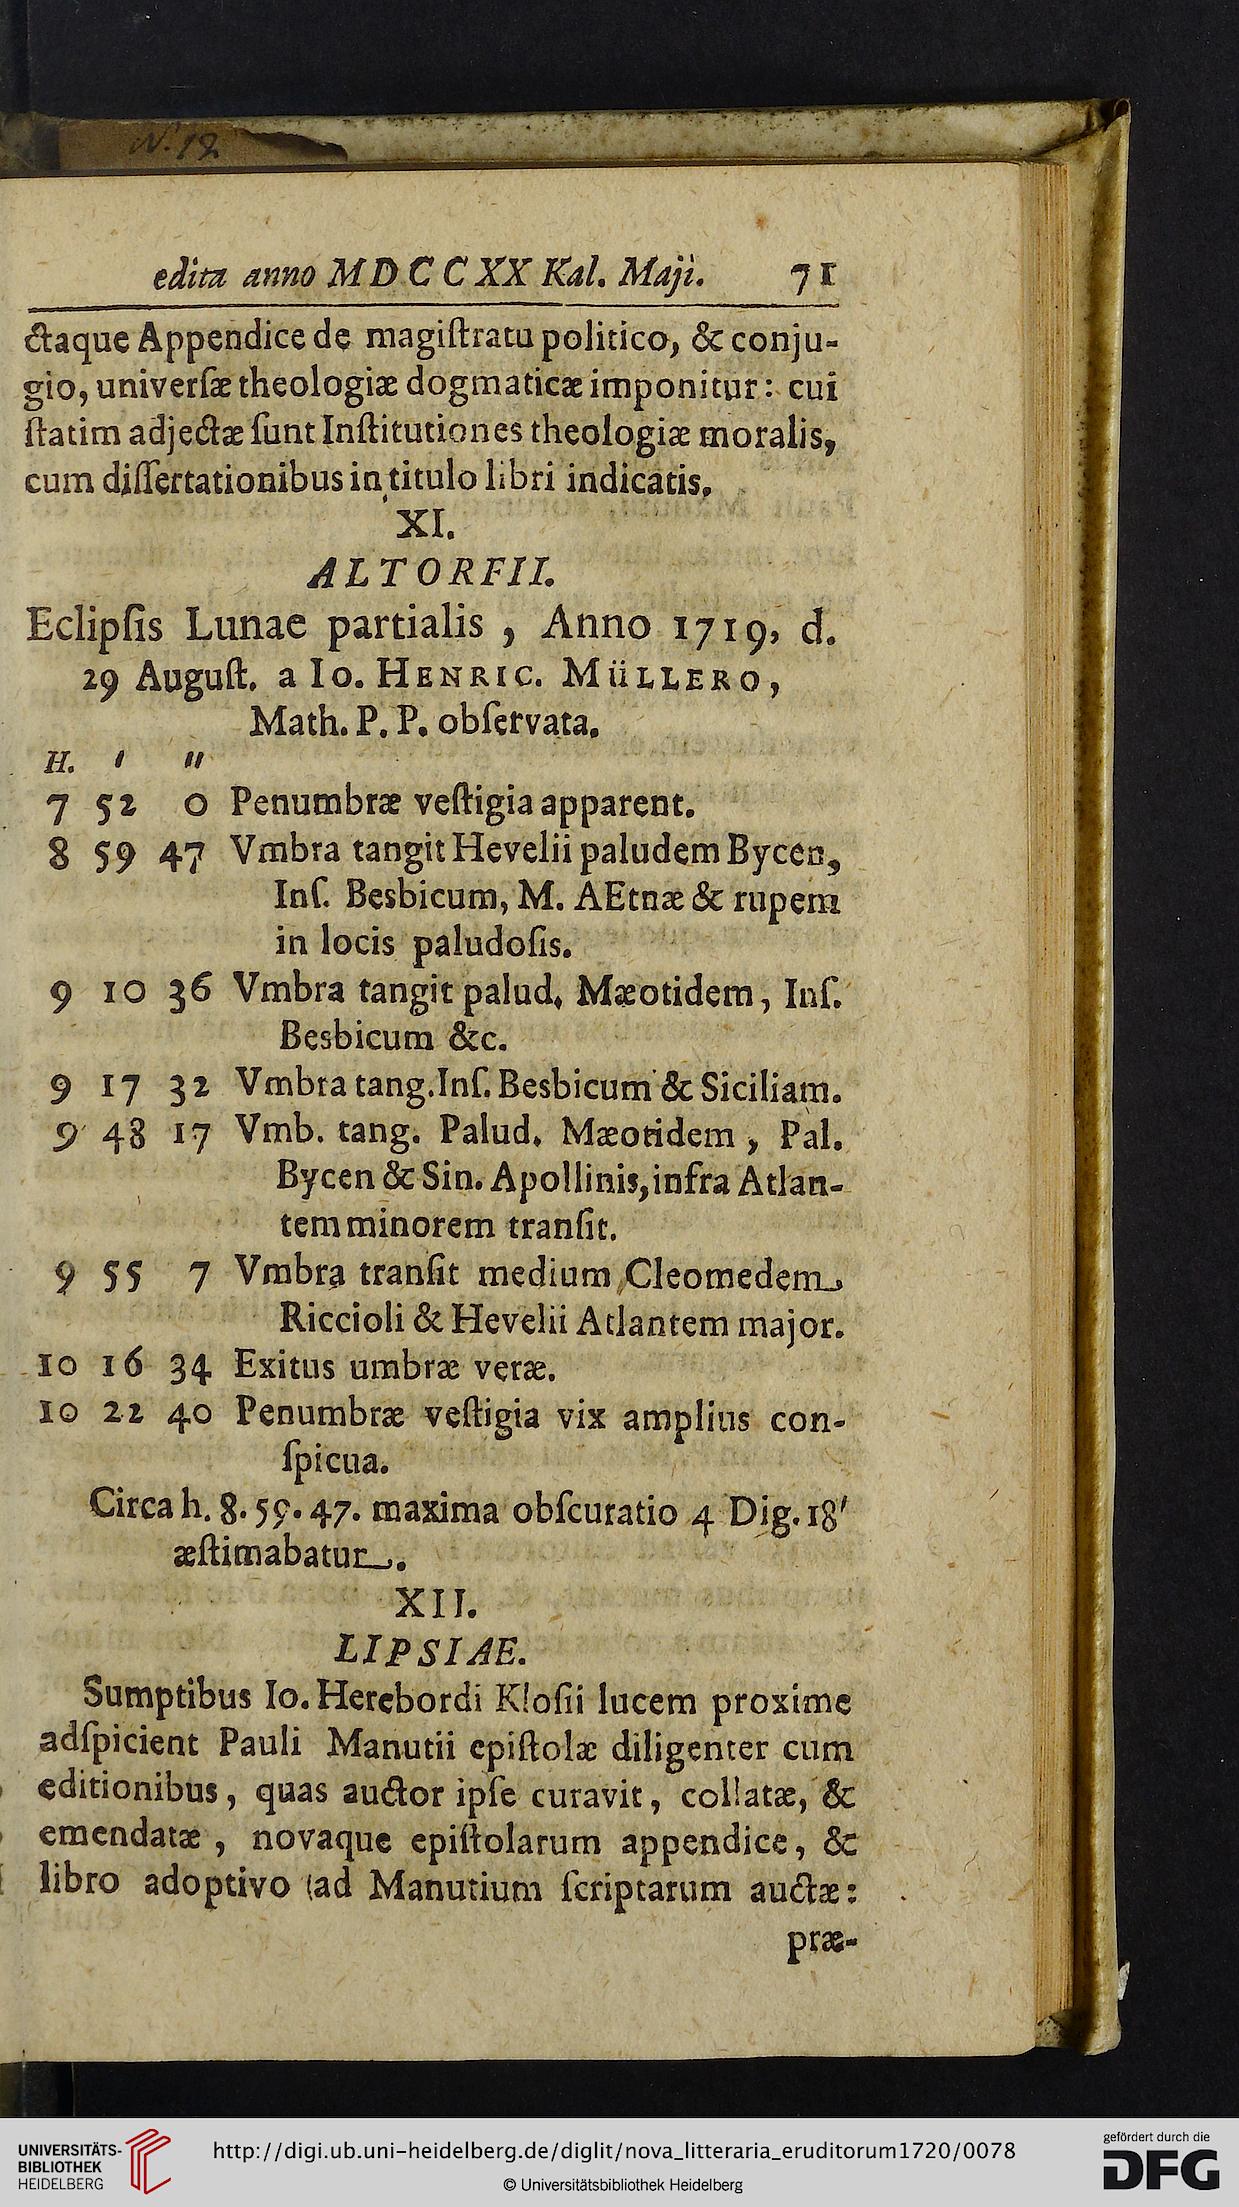 N. 12
edita anno MDCCXX Kal. Maji. 71
ctaque Appendice de magiſtratu politico, & conju-
gio, univerſæ theologiæ dogmaticæ imponitur: cui
ſtatim adjectæ ſunt Inſtitutiones theologiæ moralis,
cum diſſertationibus in titulo libri indicatis.
XI.
ALTORFII.
Eclipſis Lunae partialis , Anno 1719, d.
29 Auguſt. a Io. Henric. Müllero,
Math. P. P. obſervata.
H. ′ ″
7 52 0 Penumbræ veſtigia apparent.
8 59 47 Vmbra tangit Hevelii paludem Bycen,
Inſ. Besbicum, M. AEtnæ & rupem
in locis paludoſis.
9 10 36 Vmbra tangit palud. Mæotidem, Inſ.
Besbicum &c.
9 17 32 Vmbra tang. Inſ. Besbicum & Siciliam.
9 48 17 Vmb. tang. Palud. Mæotidem , Pal.
Bycen & Sin. Apollinis, infra Atlan-
tem minorem tranſit.
9 55 7 Vmbra tranſit medium Cleomedem
Riccioli & Hevelii Atlantem major.
10 16 34 Exitus umbræ veræ.
10 22 40 Penumbræ veſtigia vix amplius con-
ſpicua.
Circa h. 8. 59. 47. maxima obſcuratio 4 Dig. 18′
æſtimabatur.
XII.
LIPSIAE.
Sumptibus Io. Herebordi Kloſii lucem proxime
adſpicient Pauli Manutii epiſtolæ diligenter cum
editionibus, quas auctor ipſe curavit, collatæ, &
emendatæ , novaque epiſtolarum appendice, &
libro adoptivo (ad Manutium ſcriptarum auctæ:
præ-
UNIVERSITÄTS-
BIBLIOTHEK
HEIDELBERG
http://digi.ub.uni-heidelberg.de/diglit/nova_litteraria_eruditorum1720/0078
© Universitätsbibliothek Heidelberg
gefördert durch die
DFG